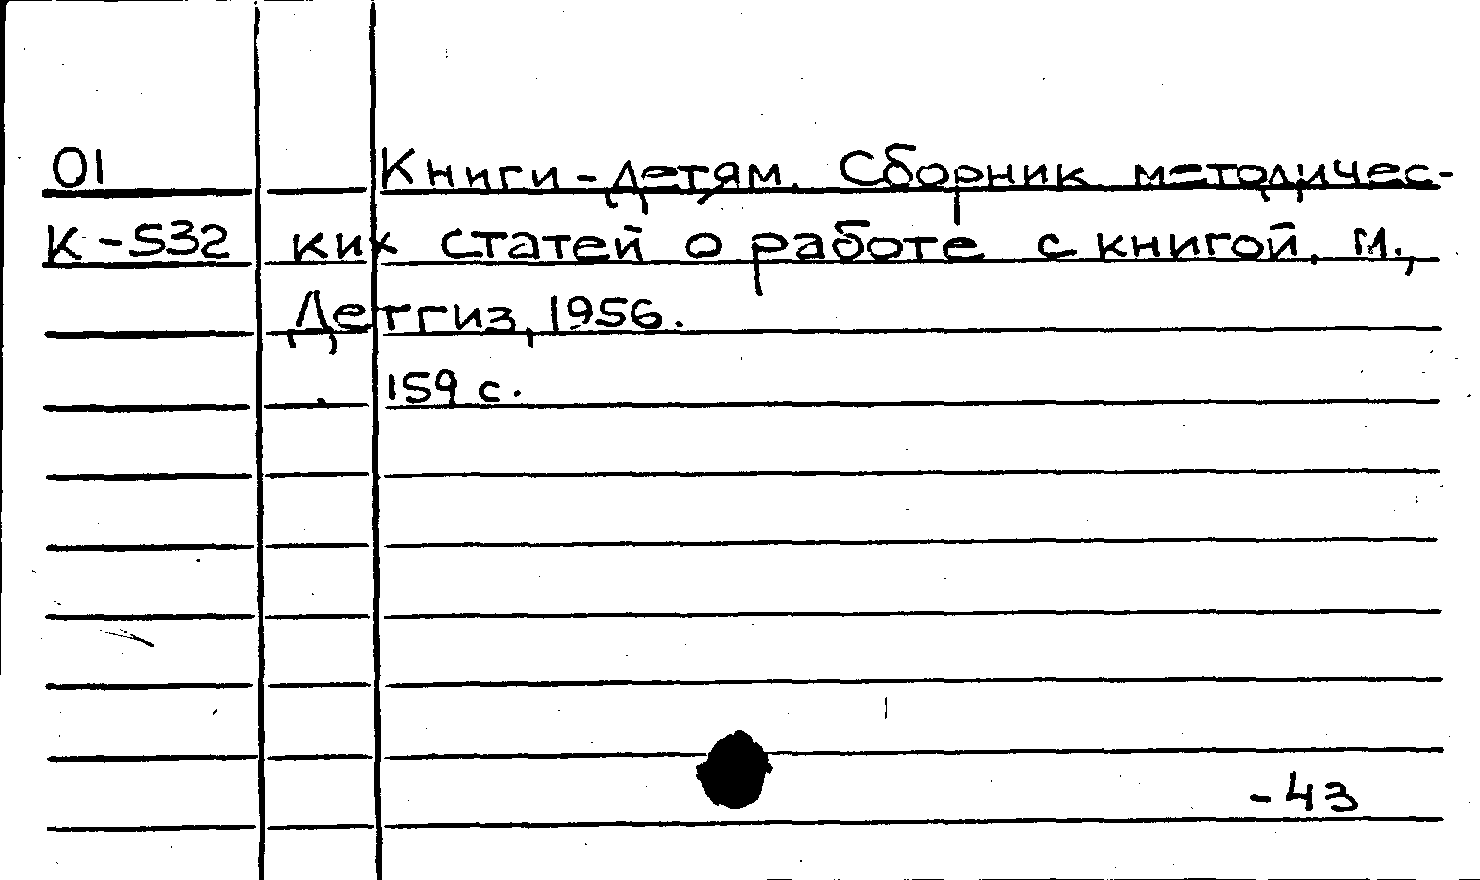 01 Книги-детям. Сборник методичес-
К-532 ких статей о работе с книгой. М.,
Детгиз, 1956.
159 с.
-43